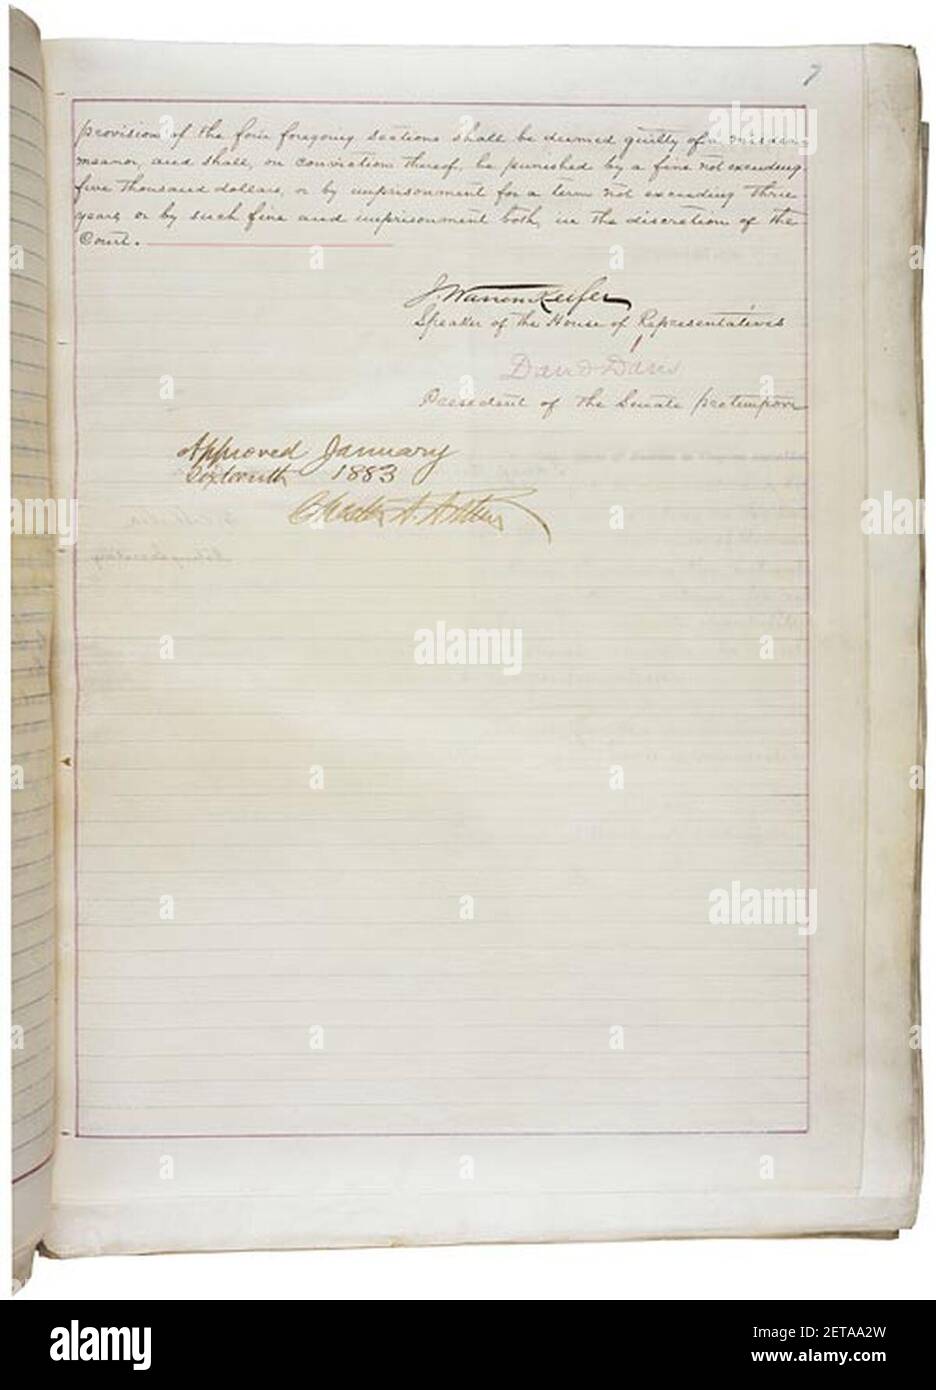 7
provision of the four foregoing sections shall be deemed guilty of a misde-
meanor, and shall, on conviction thereof, be punished by a fine not exceeding
five thousand dollars, or by imprisonment for a term not exceeding three
years, or by such fine and imprisonment both, in the discretion of the
Court.
J. Warren Keifer
Speaker of the House of Representatives
David Davis
President of the Senate pro tempore
Approved January
Sixteenth 1883
Chester A. Arthur
alamy
alamy
alamy
alamy
alamy
alamy
Image ID: 2ETAA2W
www.alamy.com